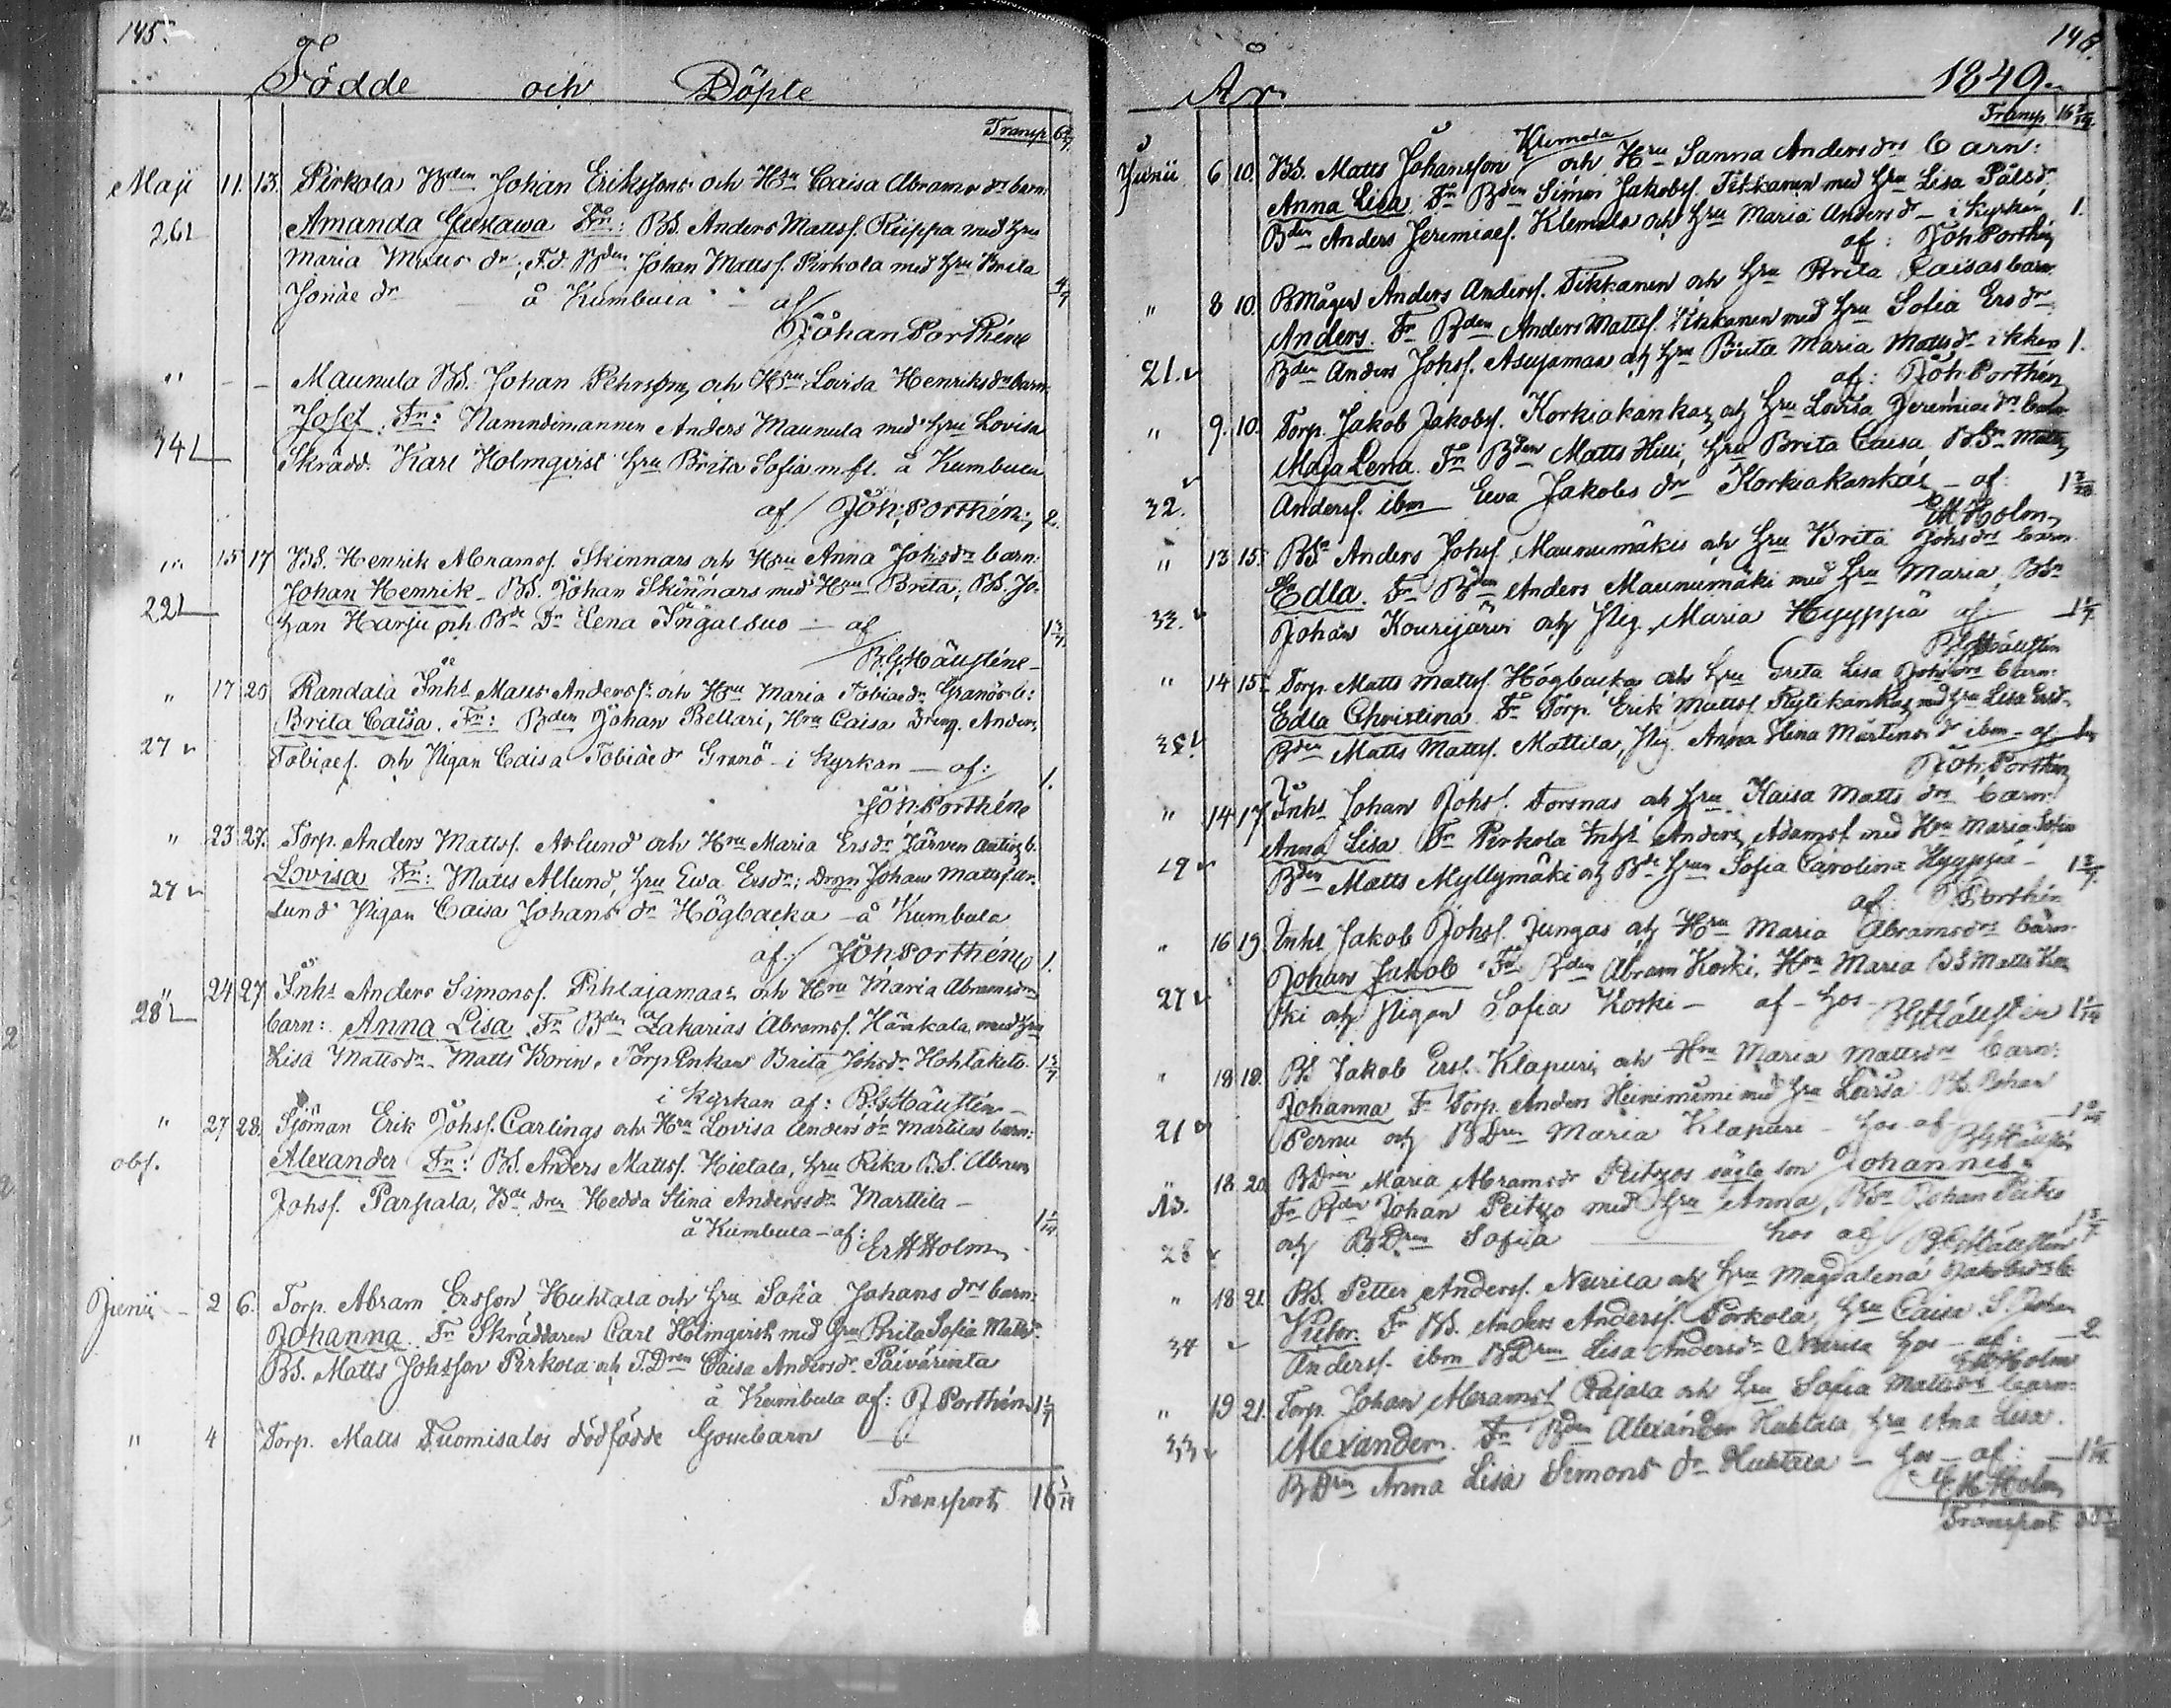 145.
Födde och Döpte
Transp. 6
Maji 11. 13. Pirkola Bden Johan Erikssons och Hru Caisa Abrams dr barn
26 Amanda Gustawa Fr: BS. Anders Mattss. Riippa med hru
Maria Matts dr, F.d. Bden Johan Mattss. Pirkola med hru Brita
Jonae dr å Kumbula af 4/7
Johan Porthén
" - - Maunula BS. Johan Pehrsson och Hru Lovisa Henriksdrs barn
Josef. Fr: Namndemannen Anders Maunula med hru Lovisa
34 Skrädd. Karl Holmqvist hru Brita Sofia m.fl. å Kumbula
af Joh: Porthén 2.
" 15 17 BS. Henrik Abramss. Skinnars och Hru Anna Johsdrs barn.
22 Johan Henrik - BS. Johan Skinnars med Hru Brita, BS. Jo-
han Harju och Bde Dr Lena Ingalsuo - af
B.G. Häusténe
" 17 20 Randala Inhs Matts Anderss. och Hru Maria Tobiaedr Granös b:
Brita Caisa. Fr: Bden Johan Bellari, Hru Caisa Dreng. Anders
27 Tobiaes. och Pigan Caisa Tobiaedr Granö - i Kyrkan - af: 1.
Joh: Porthén
" 23 27. Torp. Anders Mattss. Aslund och Hru Maria Ersdr Järven b.
27 Lovisa Fr: Matts Allund, hru Ewa Ersdr; Drgn Johan Mattss.
lund Pigan Caisa Johans dr Högbacka - å Kumbula
af: Joh: Porthén 1.
" 24 27 Inhs Anders Simonss. Pihlajamaas och Hru Maria Abramsdrs
28 barn: Anna Lisa Fr Bden Zakarias Abramss. Hänkala med hru
Lisa Mattsdr - Matts Korin, Torp Enkan Brita Johsdr Hohtakito
i Kyrkan af: B.G. Häustén
" 27 28. Sjöman Erik Johss. Carlings och Hru Lovisa Anders dr Martilas barn:
obs. Alexander Fr: BS. Anders Mattss. Hietala, hru Rika B.S. Abram
Johss. Parpala, Bde Dren Hedda Stina Andersdr Marttila -
å Kumbula - af: 1 1/14
Er H Holm
Junii - 2 6. Torp. Abram Ersson Huhtala och hru Sofia Johans drs barn:
Johanna. Fr Skräddaren Carl Holmqvist med hru Brita Sofia Mattsdr
BS. Matts Johsson Pirkola och T.Dren Caisa Andersdr Päivärinta
å Kumbula af: J Porthén 1 1/7
" 4 Torp. Matts Tuomisalos dödfödde Gossebarn
Transport 16 1/14
146.
År 1849.
Transp. 16 1/14
Klemola
Junii 6 10. BS. Matts Johansson och Hru Sanna Andersdrs barn:
Anna Lisa. Fr Bden Simon Jakobss. Tikkanen med hru Lisa Pålsdr
Bden Anders Jeremiaes. Klemola och hru Maria Andersdr - i kyrkan 1.
af: Joh Porthén
" 8 10. B.Mågen Anders Anderss. Tikkanen och hru Brita Caisas barn
Anders. Fr Bden Anders Mattss. Tikkanen med hru Sofia Ersdr
21. Bden Anders Johss. Asujamaa och hru Brita Maria Mattsdr i kkan 1.
af: Joh: Porthén
" 9. 10. Torp. Jakob Jakobss. Korkiakankas och hru Lovisa Jeremiaedrs barn
Maja Lena. Fr Bden Matts Hilli, hru Brita Caisa, BSn Matts
32. Anderss. ibm Ewa Jakobs dr Korkiakankas - af:
EH Holm
" 13 15. BSn Anders Johss. Maunumäkis och hru Brita Johsdrs barn
Edla. Fr Bden Anders Maunumäki med hru Maria, BSn
33. Johan Kourijärvi och Pig. Maria Hyyppä af:
B.G. Häustén
" 14 15. Torp. Matts Mattss. Högbackas och hru Greta Lisa Johsdrs barn:
Edla Christina. Fr Torp. Erik Mattss. med hru Lisa Ersdr
35 Bden Matts Mattss. Mattila, Pig. Anna Stina Mårtensdr ibm - af
Joh: Porthén
" 14 17. Inhs Johan Johss. Forsnas och hru Kaisa Matts drs barn:
Anna Lisa Fr Pirkola Inhs Anders Adamss. med Hru Maria Sofia
19 Bden Matts Myllymäki och Bde hrun Sofia Carolina Hyyppä -
af: J Porthén
" 16 19. Inhs Jakob Johss. Jungas och Hru Maria Abramsdrs barn.
Johan Jakob Fr Bden Abram Koski, Hru Maria BS Matts Ko-
27 ski och Pigan Sofia Koski - af - hos - BG Häustén 1 1/14
" 18 18. BS Jakob Erss. Klapuris och Hru Maria Mattsdrs barn:
Johanna Fr Torp. Anders Heinimemi med hru Lovisa BS. Johan
21 Pernu och BDren Maria Klapuri - hos af -
BG Häustén
" 18 20 BDren Maria Abramsdr Peitsos oägta son Johannes.
Fr Bden Johan Peitso med hru Anna, BSn Johan Peitso
28 och BDren Sofia hos af BG Häustén
" 18 21. BS. Petter Anderss. Nurila och hru Magdalena Jakobsdrs b.
Victor. Fr BS. Anders Anderss. Porkola, hru Caisa S. Johan
34 Anderss. ibm BDren Lisa Andersdr Nurila hos - af: 2.
EH Holm
" 19 21. Torp. Johan Abramss. Pajala och hru Sofia Mattsdrs barn:
33 Alexander. Fr Bden Alexander Huhtala, hru Ana Lisa.
BDren Anna Lisa Simons dr Huhtala - hos - af: 1 1/14
EH Holm
Transport